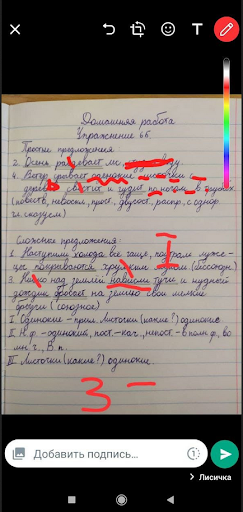 Домашняя работа
Упражнение 66.
Простые предложения:
2. Осень раздевает лес
4. Ветер срывает одинокие листочки с
деревьев, свистит и гудит по ночам в трубах
(повеств, невоскл, прост, двусост, распр, с однор
ск)
Сложные предложения:
1. Наступили холода все чаще, поутрам лужи-
цы покрываются хрупким льдом (бессоюзн)
3. Низко над землей нависли тучи, и нудный
дождик бросает на землю свои мелкие
(союзное)
I. Одинокие - прил. Листочки (какие?) одинокие
II. Н.ф - одинокий, пост-кач., непост - в полн.ф, во
мн. ч., В.п.
III Листочки (какие?) одинокие.
3 -
Добавить подпись…
Лисичка